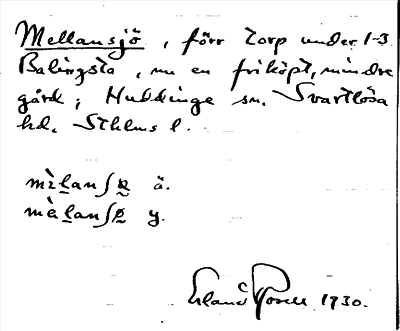 Mellansjö, förr torp under 1-3
Balingsta, nu en friköpt, mindre
gård; Huddinge sn. Svartlösa
hd. Sthlms l.
ä.
y.
Erland Rosell 1930.